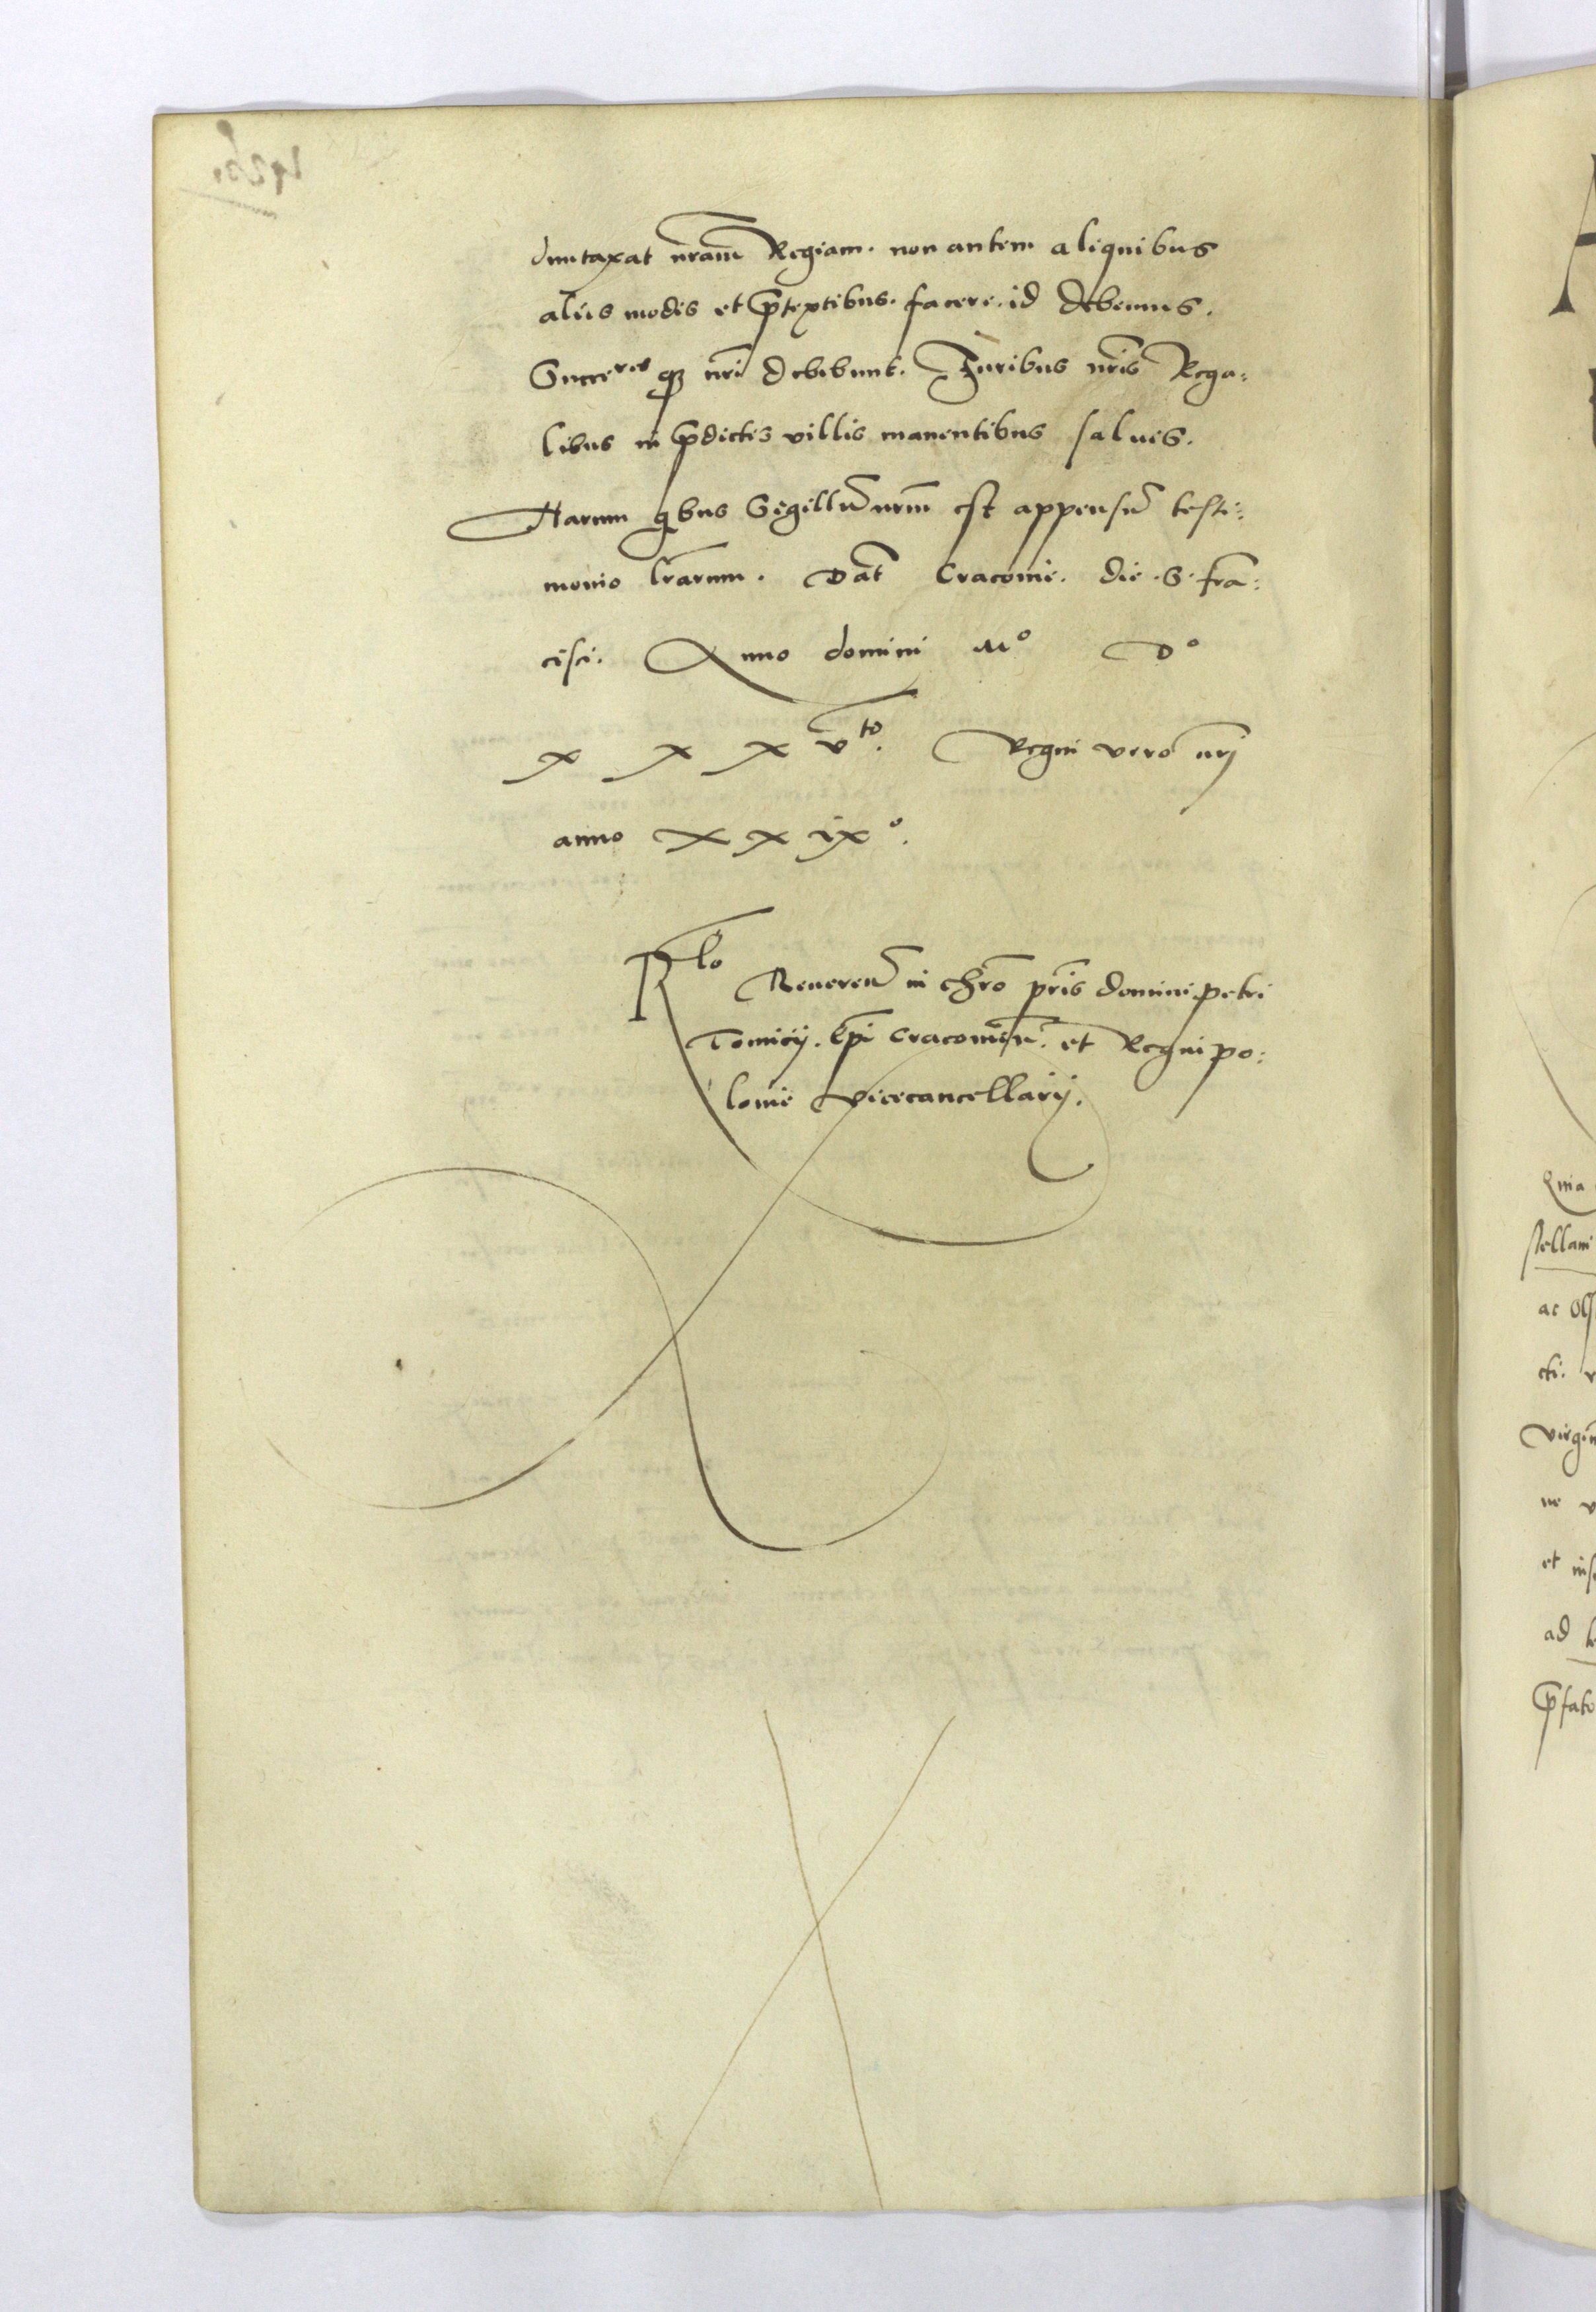 duntaxat nr̄am Regiam. non autem aliquibus
aliis modis et p̄textibus. facere. id debemus.
Succeres qꝫ nr̄i debebunt. Iuribus nr̄is Rega:
libus in p̄dictis villis manentibus saluis.
Harum qbus Sigillū nrm̄ est appensū testi:
monio lr̄arum. Dat̄ Cracouie. die. S. frā:
cisci. Anno domini Mº Dº
x x x v̄to. Regni vero nrj
anno x x ixº.
Rlo Reuereñ in chr̄o pr̄is domini petri
Tomicij. Ep̄i Cracouieñ. et Regni po:
lonie vicecancellarij.
Quia
stellani
ac
cti.
virgin
ne
et
ad
p̄fato